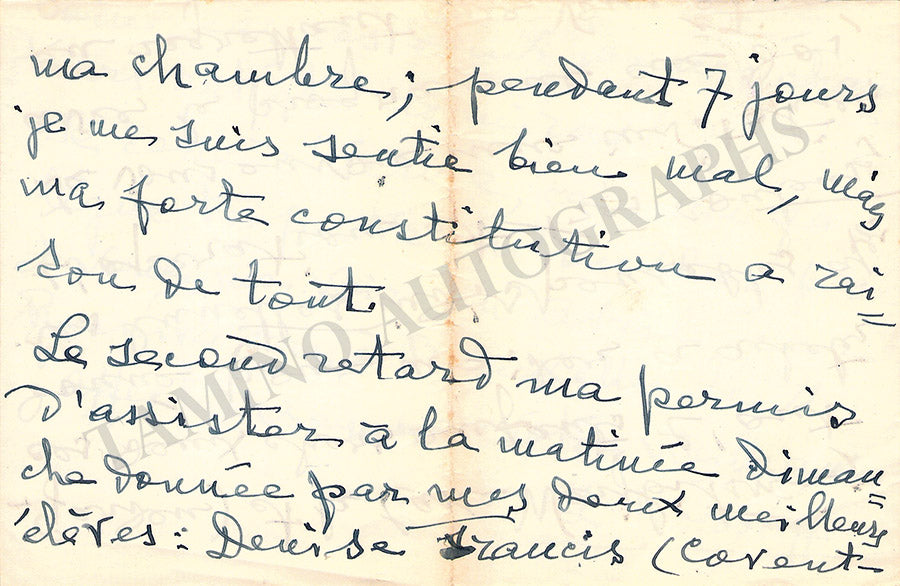 ma chambre; pendant 7 jours
je me suis sentie bien mal, mais
ma forte constitution a rai=
son de tout.
Le second retard ma permis
d'assister à la matinée diman=
che donnée par mes deux meilleurs
élèves: Denise Francis (Covent-
TAMINO AUTOGRAPHS